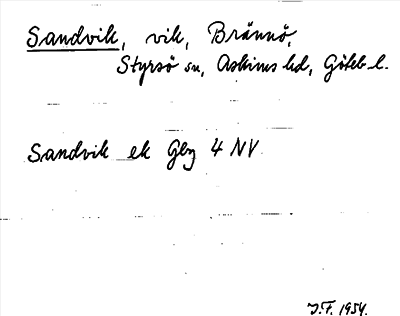 Sandvik, vik, Brännö,
Styrsö sn, Askims hd, Göteb. l.
Sandvik ek Gbg 4 NV
J.F. 1954.